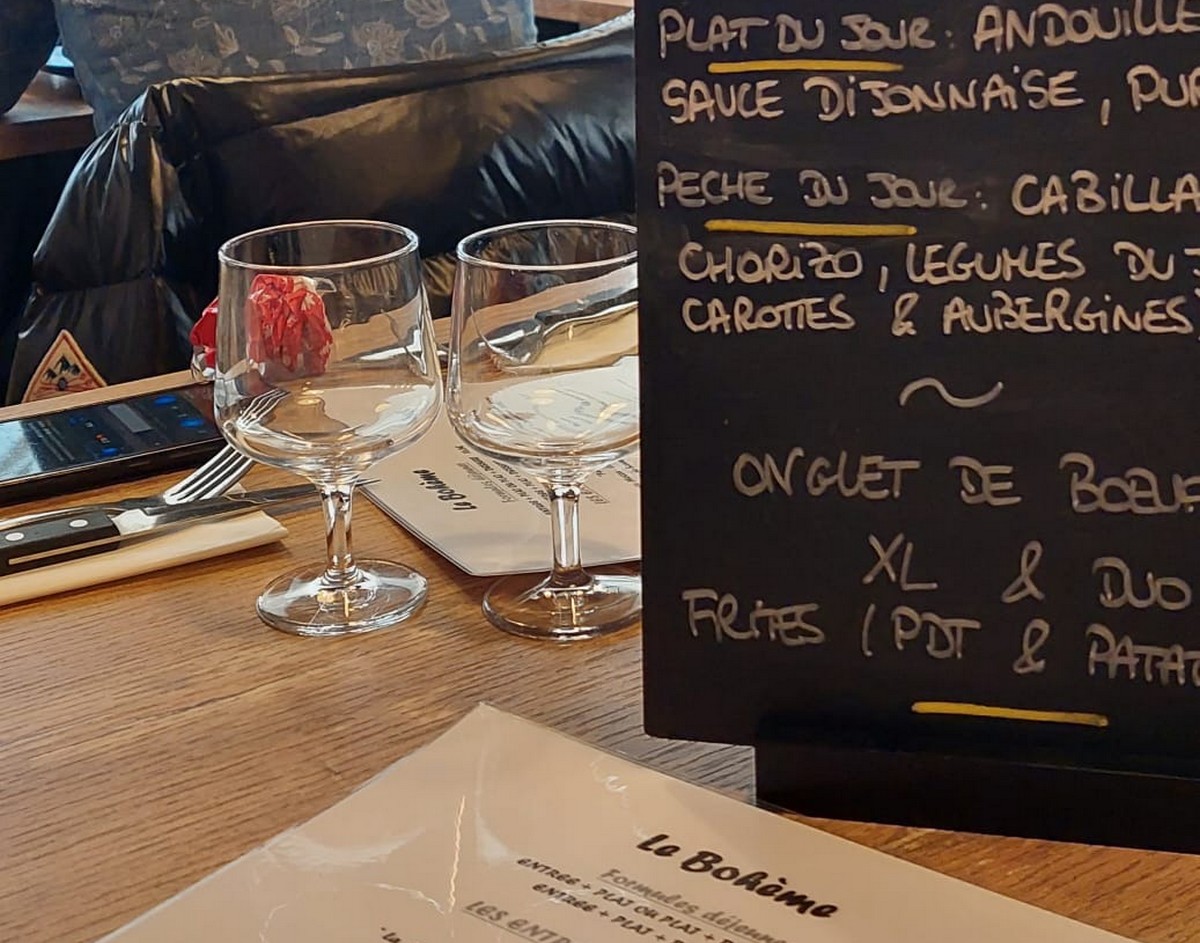 PLAT DU JOUR : ANDOUILLE
SAUCE DIJONNAISE , PU
PECHE DU JOUR : CABILLA
CHORIZO , LEGUMES DU J
CAROTTES & AUBERGINES
~
ONGLET DE BOEUF
XL & DUO
FRITES ( PDT & PATAT
Le Bohème
Formules déjeune
ENTREE + PLAT OU PLAT + D
ENTREE + PLAT +
LES ENTR
Le Bohème